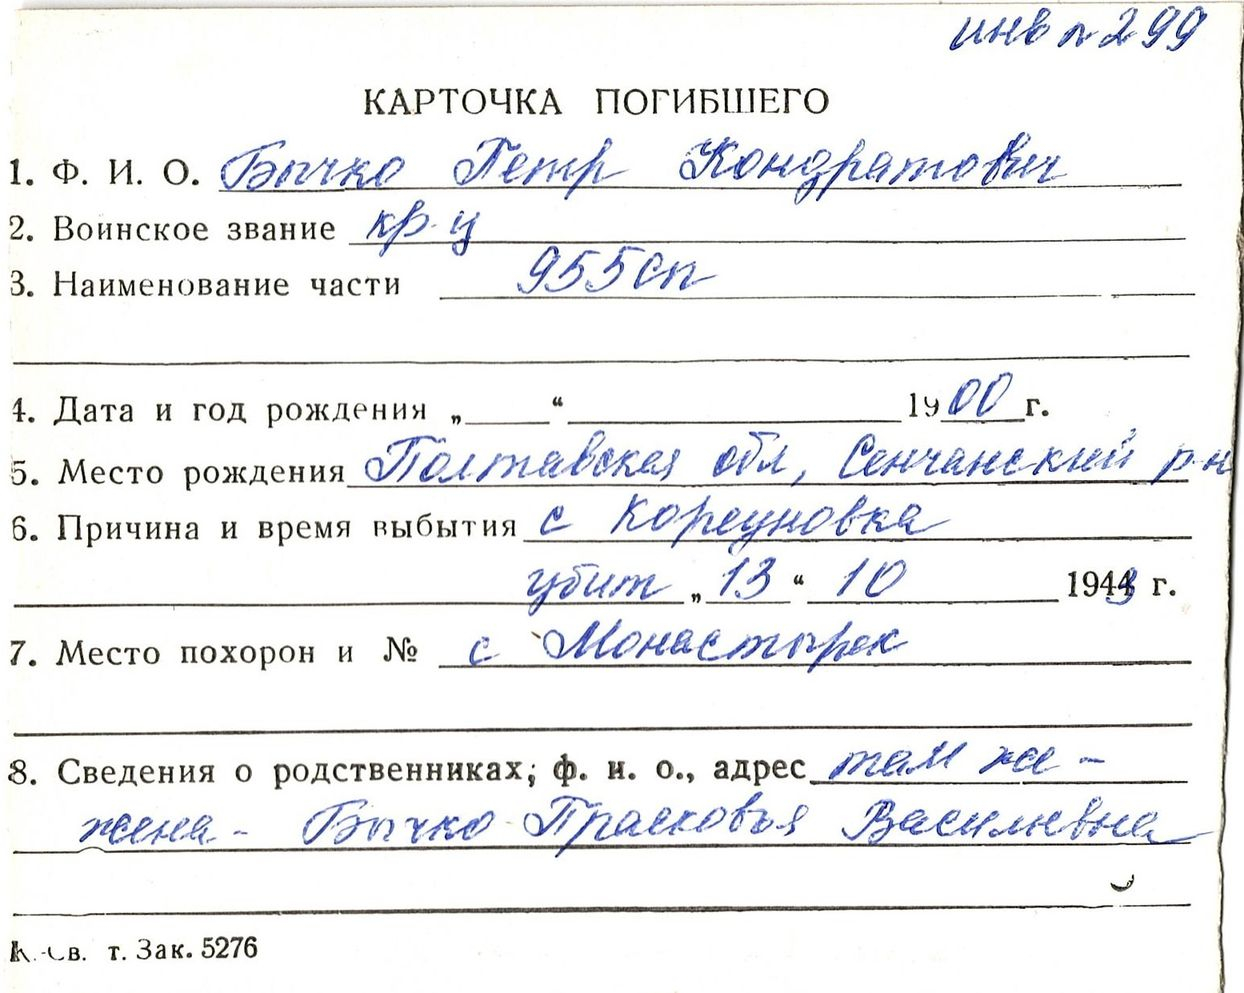 инв № 299
КАРТОЧКА ПОГИБШЕГО
1. Ф. И. О. Бычко Петр Кондратович
2. Воинское звание кр-ц
3. Наименование части 955 сп
4. Дата и год рождения „ “ 1900 г.
5. Место рождения Полтавская обл, Сенчанский р-н
6. Причина и время выбытия с Корсуновка
убит „13“ 10 1943 г.
7. Место похорон и № с Монастырек
8. Сведения о родственниках; ф. и. о., адрес там же -
жена - Бычко Прасковья Васильевна
т. Зак. 5276